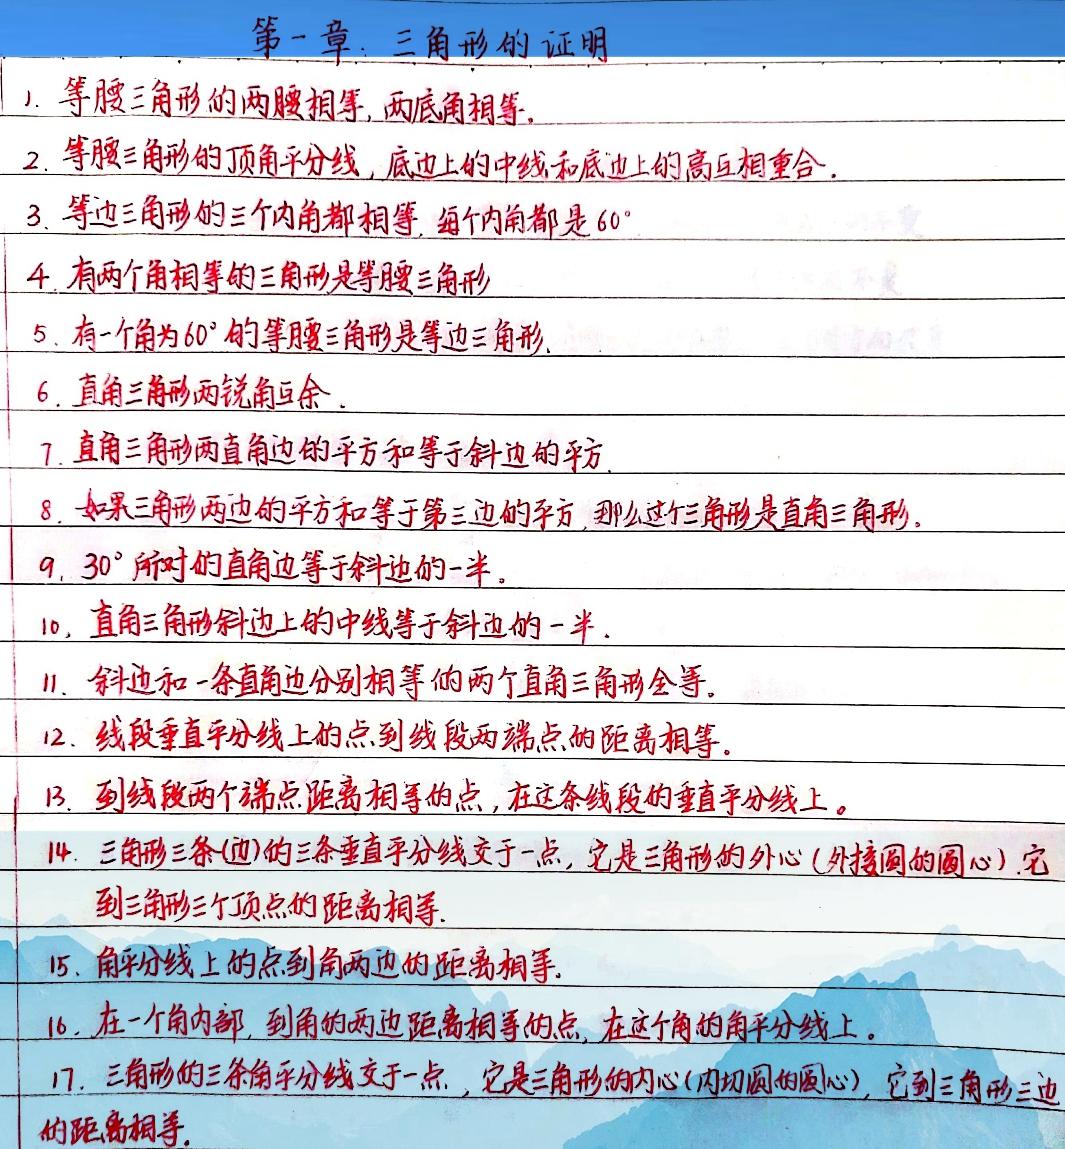 第一章:三角形的证明
1. 等腰三角形的两腰相等,两底角相等。
2. 等腰三角形的顶角平分线,底边上的中线和底边上的高互相重合.
3. 等边三角形的三个内角都相等,每个内角都是60°
4. 有两个角相等的三角形是等腰三角形
5. 有一个角为60°的等腰三角形是等边三角形.
6. 直角三角形两锐角互余.
7. 直角三角形两直角边的平方和等于斜边的平方.
8. 如果三角形两边的平方和等于第三边的平方,那么这个三角形是直角三角形。
9. 30°所对的直角边等于斜边的一半。
10. 直角三角形斜边上的中线等于斜边的一半.
11. 斜边和一条直角边分别相等的两个直角三角形全等。
12. 线段垂直平分线上的点到线段两端点的距离相等。
13. 到线段两个端点距离相等的点,在这条线段的垂直平分线上。
14. 三角形三条(边)的三条垂直平分线交于一点,它是三角形的外心(外接圆的圆心).它
到三角形三个顶点的距离相等.
15. 角平分线上的点到角两边的距离相等.
16. 在一个角内部,到角的两边距离相等的点,在这个角的角平分线上。
17. 三角形的三条角平分线交于一点,它是三角形的内心(内切圆的圆心),它到三角形三边
的距离相等.